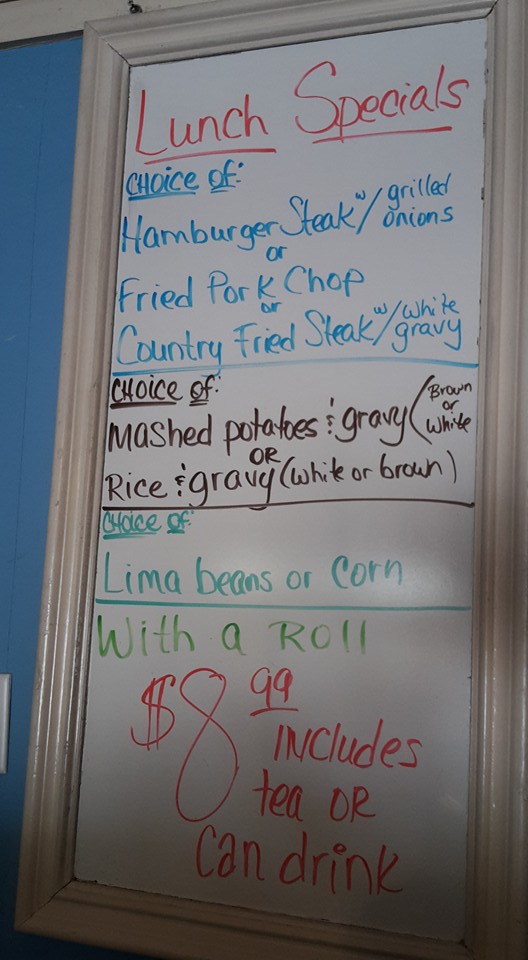 Lunch Specials
CHOICE OF:
Hamburger Steak w/ grilled onions
or
Fried Pork Chop
or
Country Fried Steak w/ white gravy
CHOICE OF:
Mashed potatoes & gravy (Brown or White
OR
Rice & gravy (white or brown)
CHOICE OF:
Lima beans or corn
With a ROLL
$8 99
INCLUDES
tea OR
Can drink